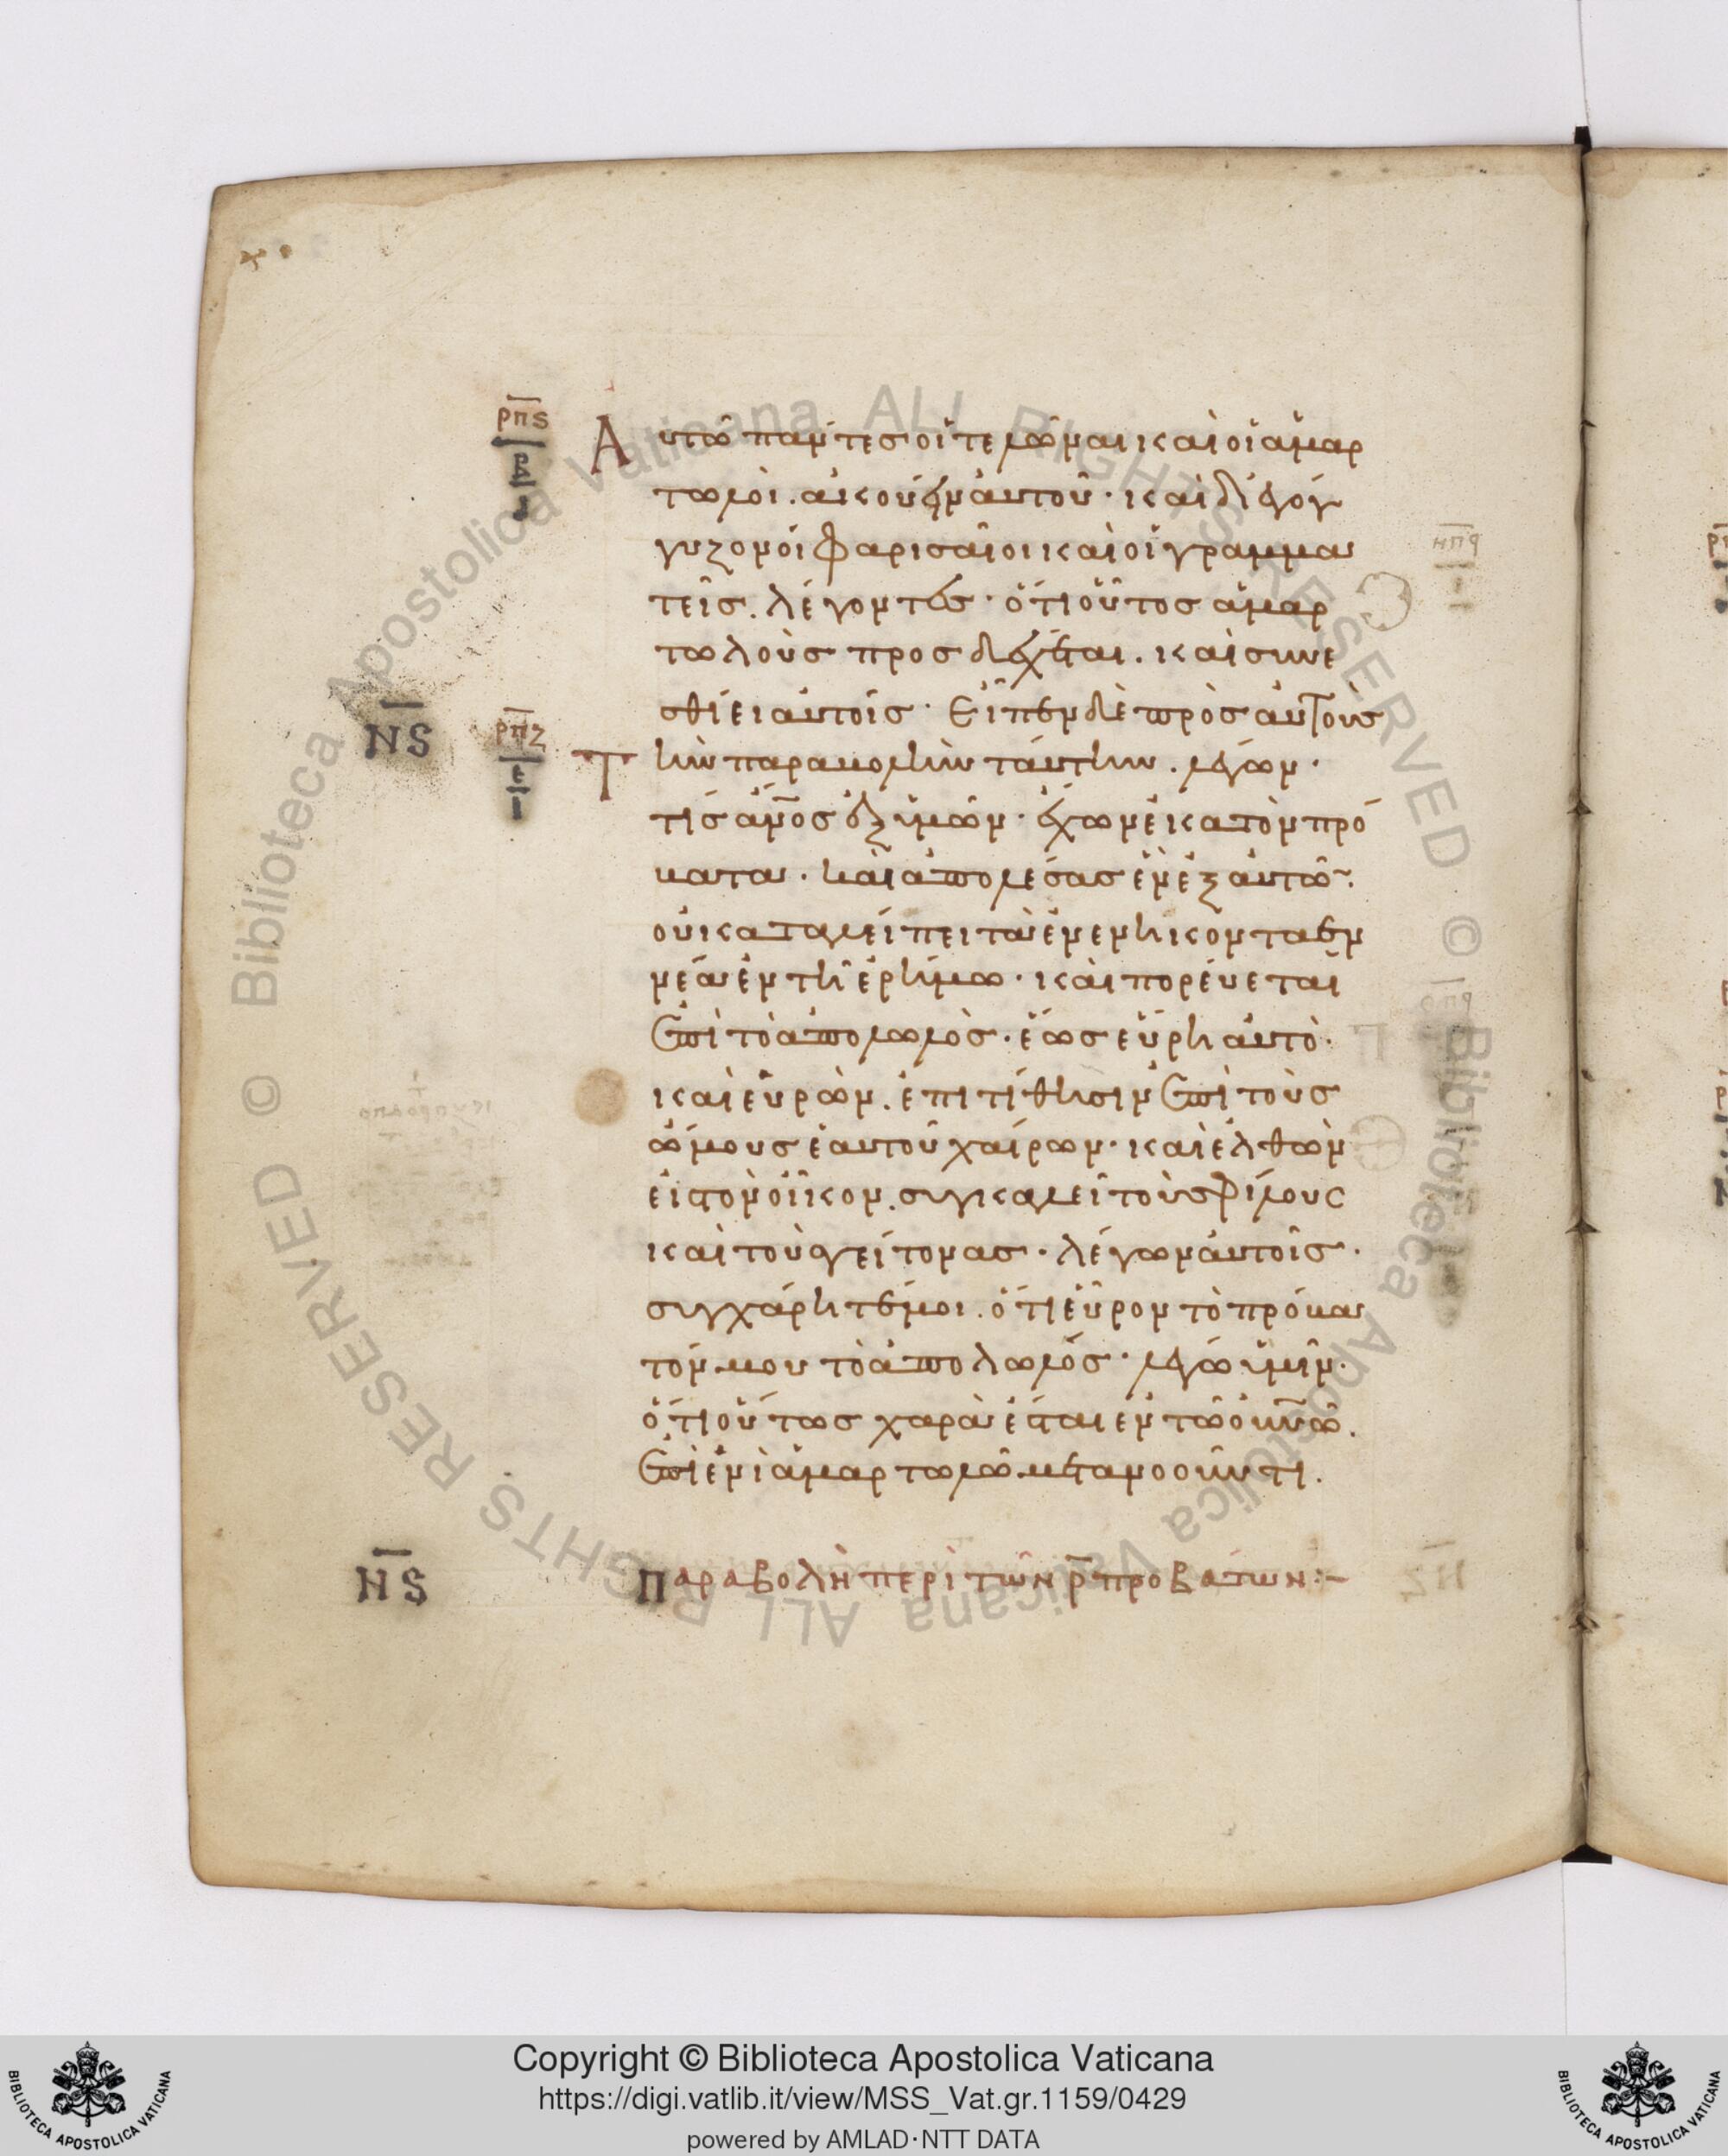 ρπϛ
β
Αυτῶ πάντεσ οἱ τελῶναι καὶ οἱ ἁμαρ
τωλοὶ. ἀκούειν αὐτοῦ· καὶ διεγόγ
γυζον οἱ Φαρισαῖοι καὶ οἱ γραμμα
τεῖσ. λέγοντεσ· ὅτι οὗτοσ ἁμαρ
τωλοὺσ προσδέχεται. καὶ συνε
σθίει αὐτοῖσ· Εἶπεν δὲ πρὸσ αὐτοὺσ
ΝϚ
ρπζ
ε
Τὴν παραβολὴν ταύτην. λέγων·
τίσ ἄνοσ ἐξ ὑμῶν· ἔχων ἑκατὸν πρό
βατα· καὶ ἀπολέσασ ἓν ἐξ αὐτῶν·
οὐ καταλείπει τὰ ἐνενηκονταεν
νέα ἐν τῆ ἐρήμω· καὶ πορέυεται
ἐπὶ τὸ ἀπολωλὸσ· ἕωσ εὕρη αὐτὸ·
καὶ εὑρὼν. ἐπιτίθησιν ἐπὶ τοὺσ
ὤμουσ ἑαυτοῦ χαίρων· καὶ ἐλθὼν
εἰσ τὸν οἶκον. συγκαλεῖ τοὺσ φίλουσ
καὶ τοὺσ γείτονασ· λέγων αὐτοῖσ·
συγχάρητέ μοι. ὅτι εὗρον τὸ πρόβα
τόν μου τὸ ἀπολωλόσ· λέγω ὑμῖν·
ὅτι οὕτωσ χαρὰ ἔσται ἐν τῶ οὐνῶ.
ἐπὶ ἑνὶ ἁμαρτωλῶ μετανοοῦντι.
ΝϚ
Παραβολὴ περὶ τῶν ρ προβάτων:~
© Biblioteca Apostolica Vaticana ALL RIGHTS RESERVED © Biblioteca Apostolica Vaticana ALL RIGHTS RESERVED
Copyright © Biblioteca Apostolica Vaticana
https://digi.vatlib.it/view/MSS_Vat.gr.1159/0429
powered by AMLAD·NTT DATA
BIBLIOTECA APOSTOLICA VATICANA
BIBLIOTECA APOSTOLICA VATICANA